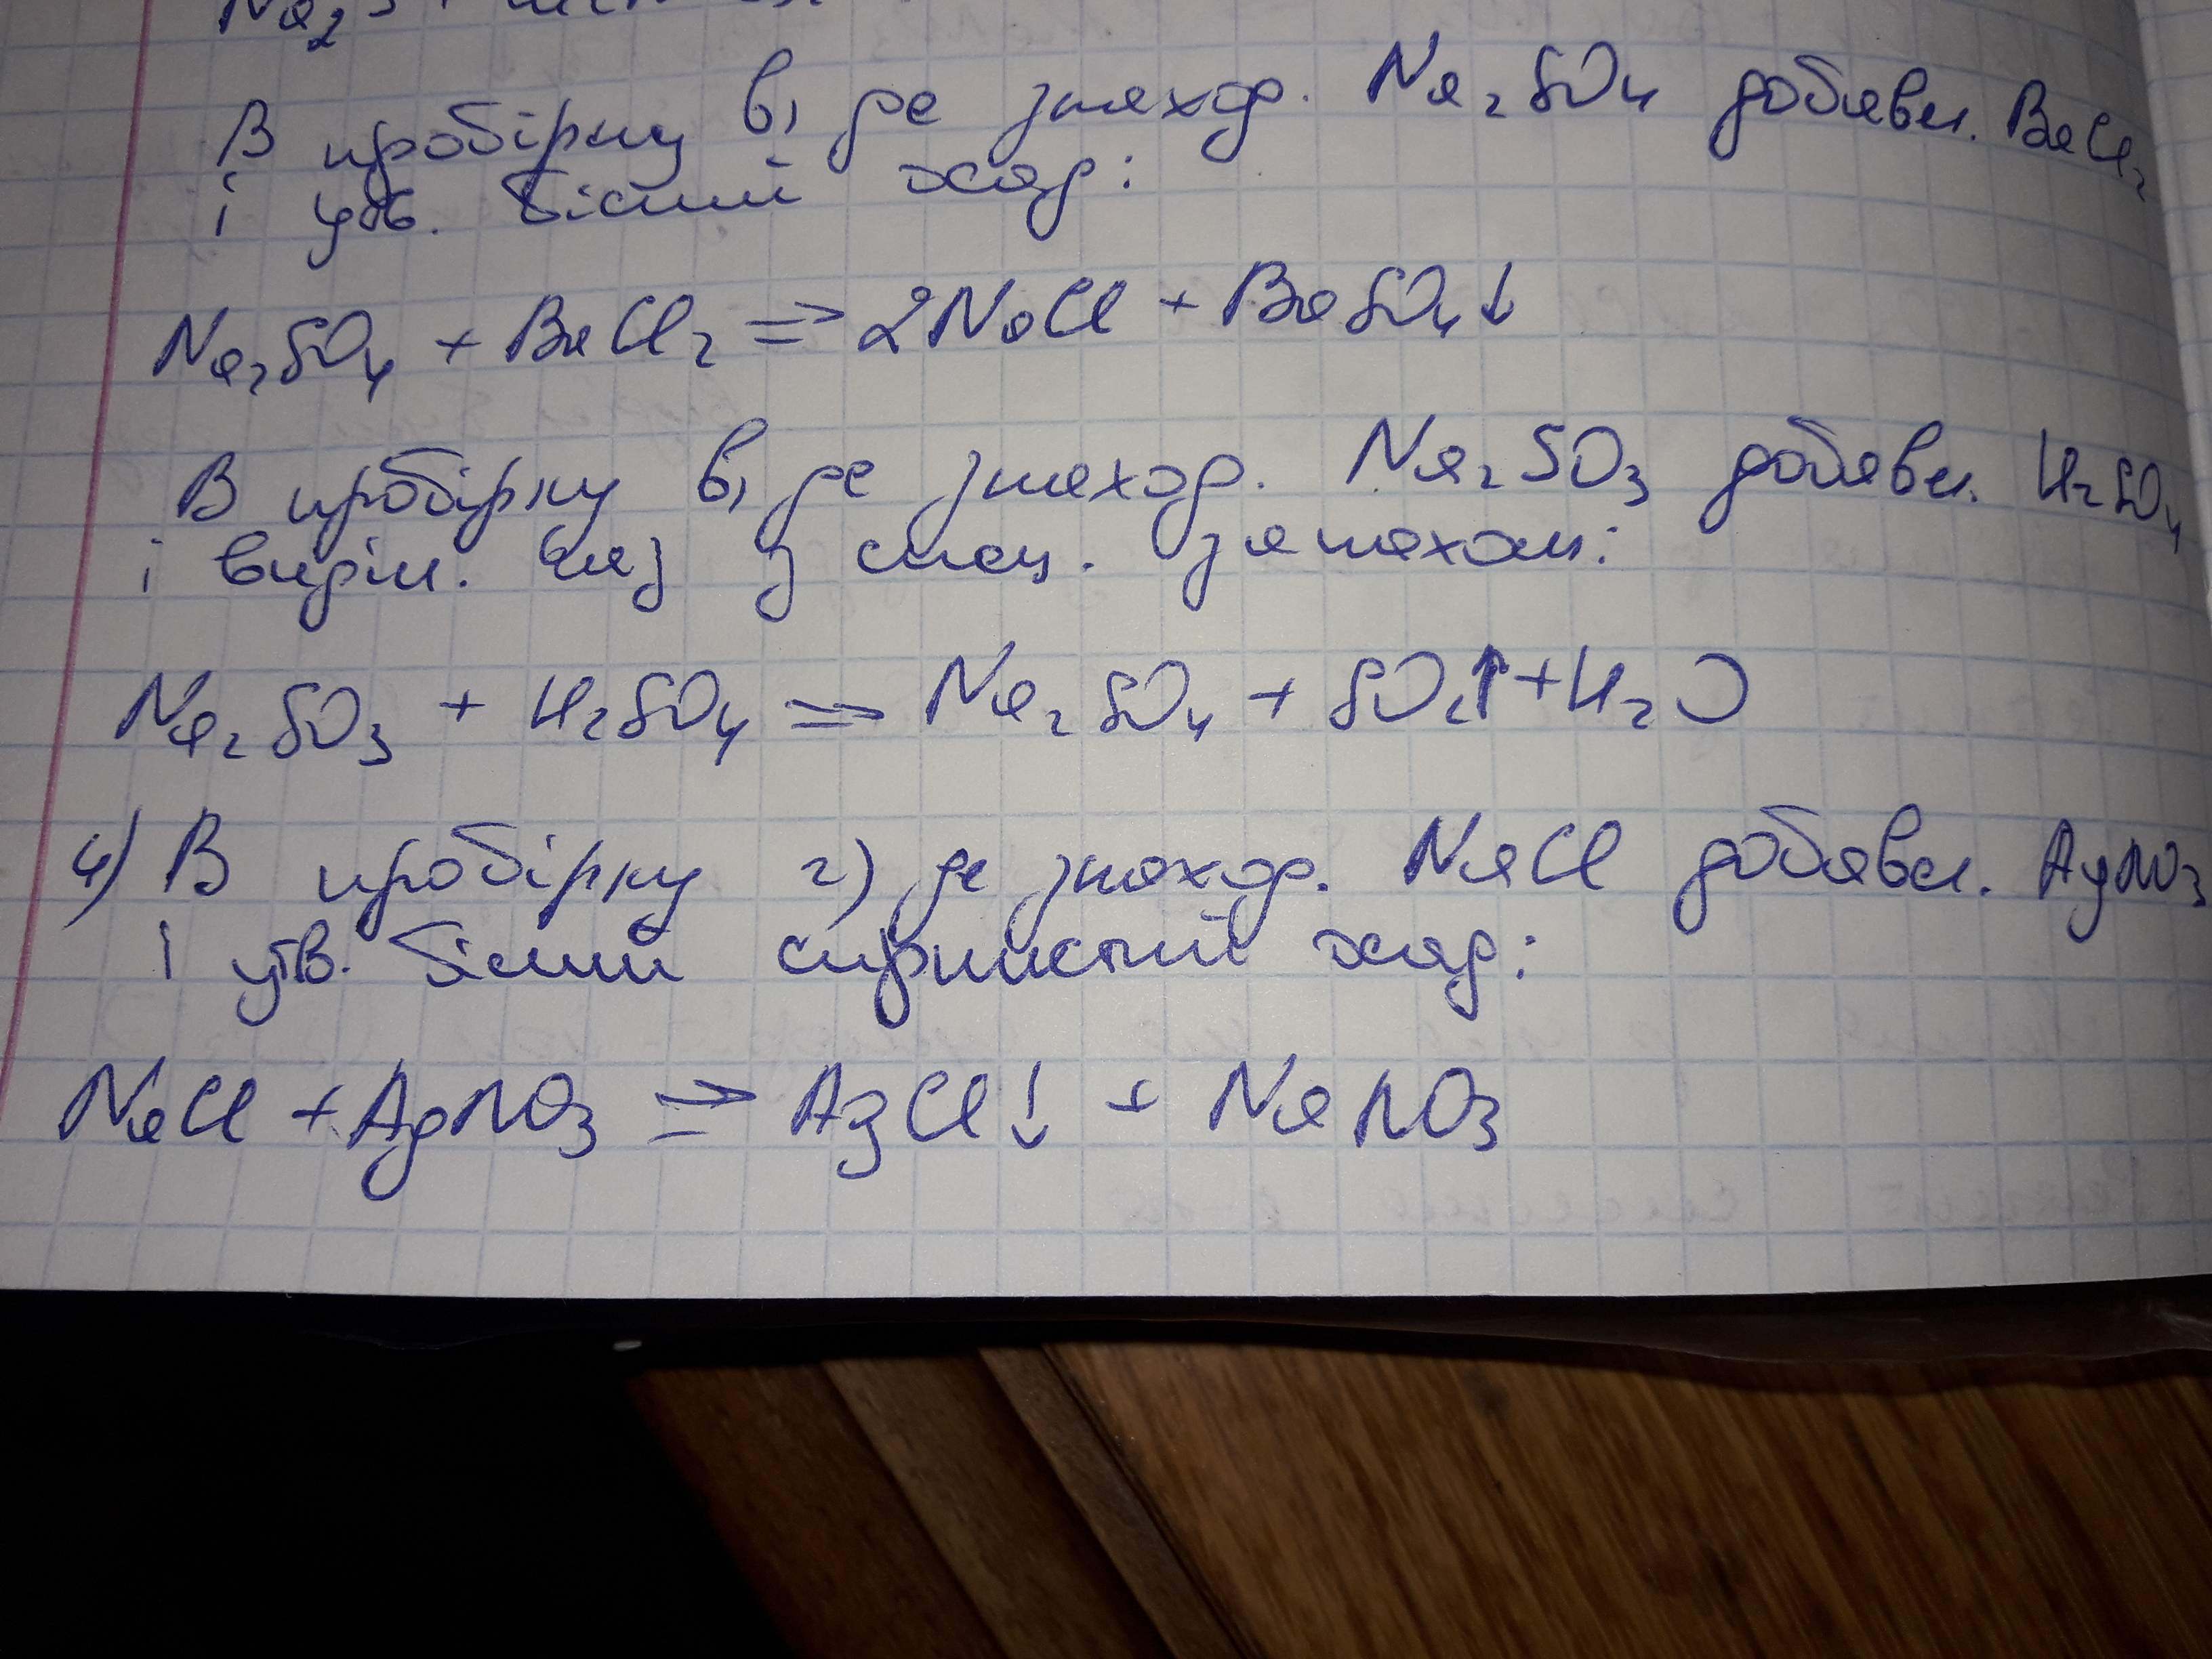 Na₂S
В пробірку в) де знаход. Na₂SO₄ добавл. BaCl₂
і утв. білий жар:
Na₂SO₄ + BaCl₂ => 2NaCl + BaSO₄↓
В пробірку в) де знаход. Na₂SO₃ добавл. H₂SO₄
і виділ. газ з спец. запахом:
Na₂SO₃ + H₂SO₄ => Na₂SO₄ + SO₂↑ + H₂O
4) В пробірку г) де знаход. NaCl добавл. AgNO₃
і утв. білий сирнистий жар:
NaCl + AgNO₃ => AgCl↓ + NaNO₃